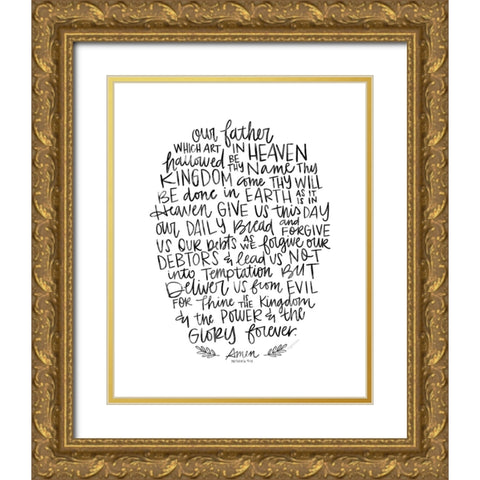 our father
WHICH ART IN HEAVEN
hallowed BE THY Name Thy
KINGDOM come THY WILL
BE done IN EARTH AS IT IS IN
Heaven GIVE US this DAY
our DAILY Bread and FORGIVE
US OUR Debts AS WE forgive our
DEBTORS & lead US NOT
into Temptation BUT
Deliver us from EVIL
FOR Thine IS THE Kingdom
& the POWER & the
GLORY forever.
Amen